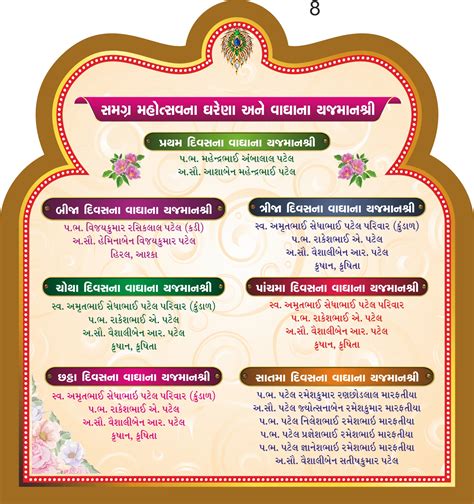 8
સમગ્ર મહોત્સવના ઘરેણા અને વાઘાના યજમાનશ્રી
પ્રથમ દિવસના વાઘાના યજમાનશ્રી
પ.ભ. મહેન્દ્રભાઈ અંબાલાલ પટેલ
અ.સૌ. આશાબેન મહેન્દ્રભાઈ પટેલ
બીજા દિવસના વાઘાના યજમાનશ્રી
પ.ભ. વિજયકુમાર રસિકલાલ પટેલ (કડી)
અ.સૌ. હેમિનાબેન વિજયકુમાર પટેલ
હિરલ, આશ્કા
ત્રીજા દિવસના વાઘાના યજમાનશ્રી
સ્વ. અમૃતભાઈ સેધાભાઈ પટેલ પરિવાર (કુંડાળ)
પ.ભ. રાકેશભાઈ એ. પટેલ
અ.સૌ. વૈશાલીબેન આર. પટેલ
ક્રૃષાન, ક્રૃષિતા
ચોથા દિવસના વાઘાના યજમાનશ્રી
સ્વ. અમૃતભાઈ સેધાભાઈ પટેલ પરિવાર (કુંડાળ)
પ.ભ. રાકેશભાઈ એ. પટેલ
અ.સૌ. વૈશાલીબેન આર. પટેલ
ક્રૃષાન, ક્રૃષિતા
પાંચમા દિવસના વાઘાના યજમાનશ્રી
સ્વ. અમૃતભાઈ સેધાભાઈ પટેલ પરિવાર
પ.ભ. રાકેશભાઈ એ. પટેલ
અ.સૌ. વૈશાલીબેન આર. પટેલ
ક્રૃષાન, ક્રૃષિતા
છઠ્ઠા દિવસના વાઘાના યજમાનશ્રી
સ્વ. અમૃતભાઈ સેધાભાઈ પટેલ પરિવાર (કુંડાળ)
પ.ભ. રાકેશભાઈ એ. પટેલ
અ.સૌ. વૈશાલીબેન આર. પટેલ
ક્રૃષાન, ક્રૃષિતા
સાતમા દિવસના વાઘાના યજમાનશ્રી
પ.ભ. પટેલ રમેશકુમાર રણછોડલાલ મારફતીયા
અ.સૌ. પટેલ જ્યોત્સનાબેન રમેશકુમાર મારફતીયા
પ.ભ. પટેલ નિલેશભાઈ રમેશભાઈ મારફતીયા
પ.ભ. પટેલ પ્રજ્ઞેશભાઈ રમેશભાઈ મારફતીયા
પ.ભ. પટેલ જ્ઞાનેશભાઈ રમેશભાઈ મારફતીયા
અ.સૌ. પટેલ વૈશાલીબેન સતીષકુમાર પટેલ